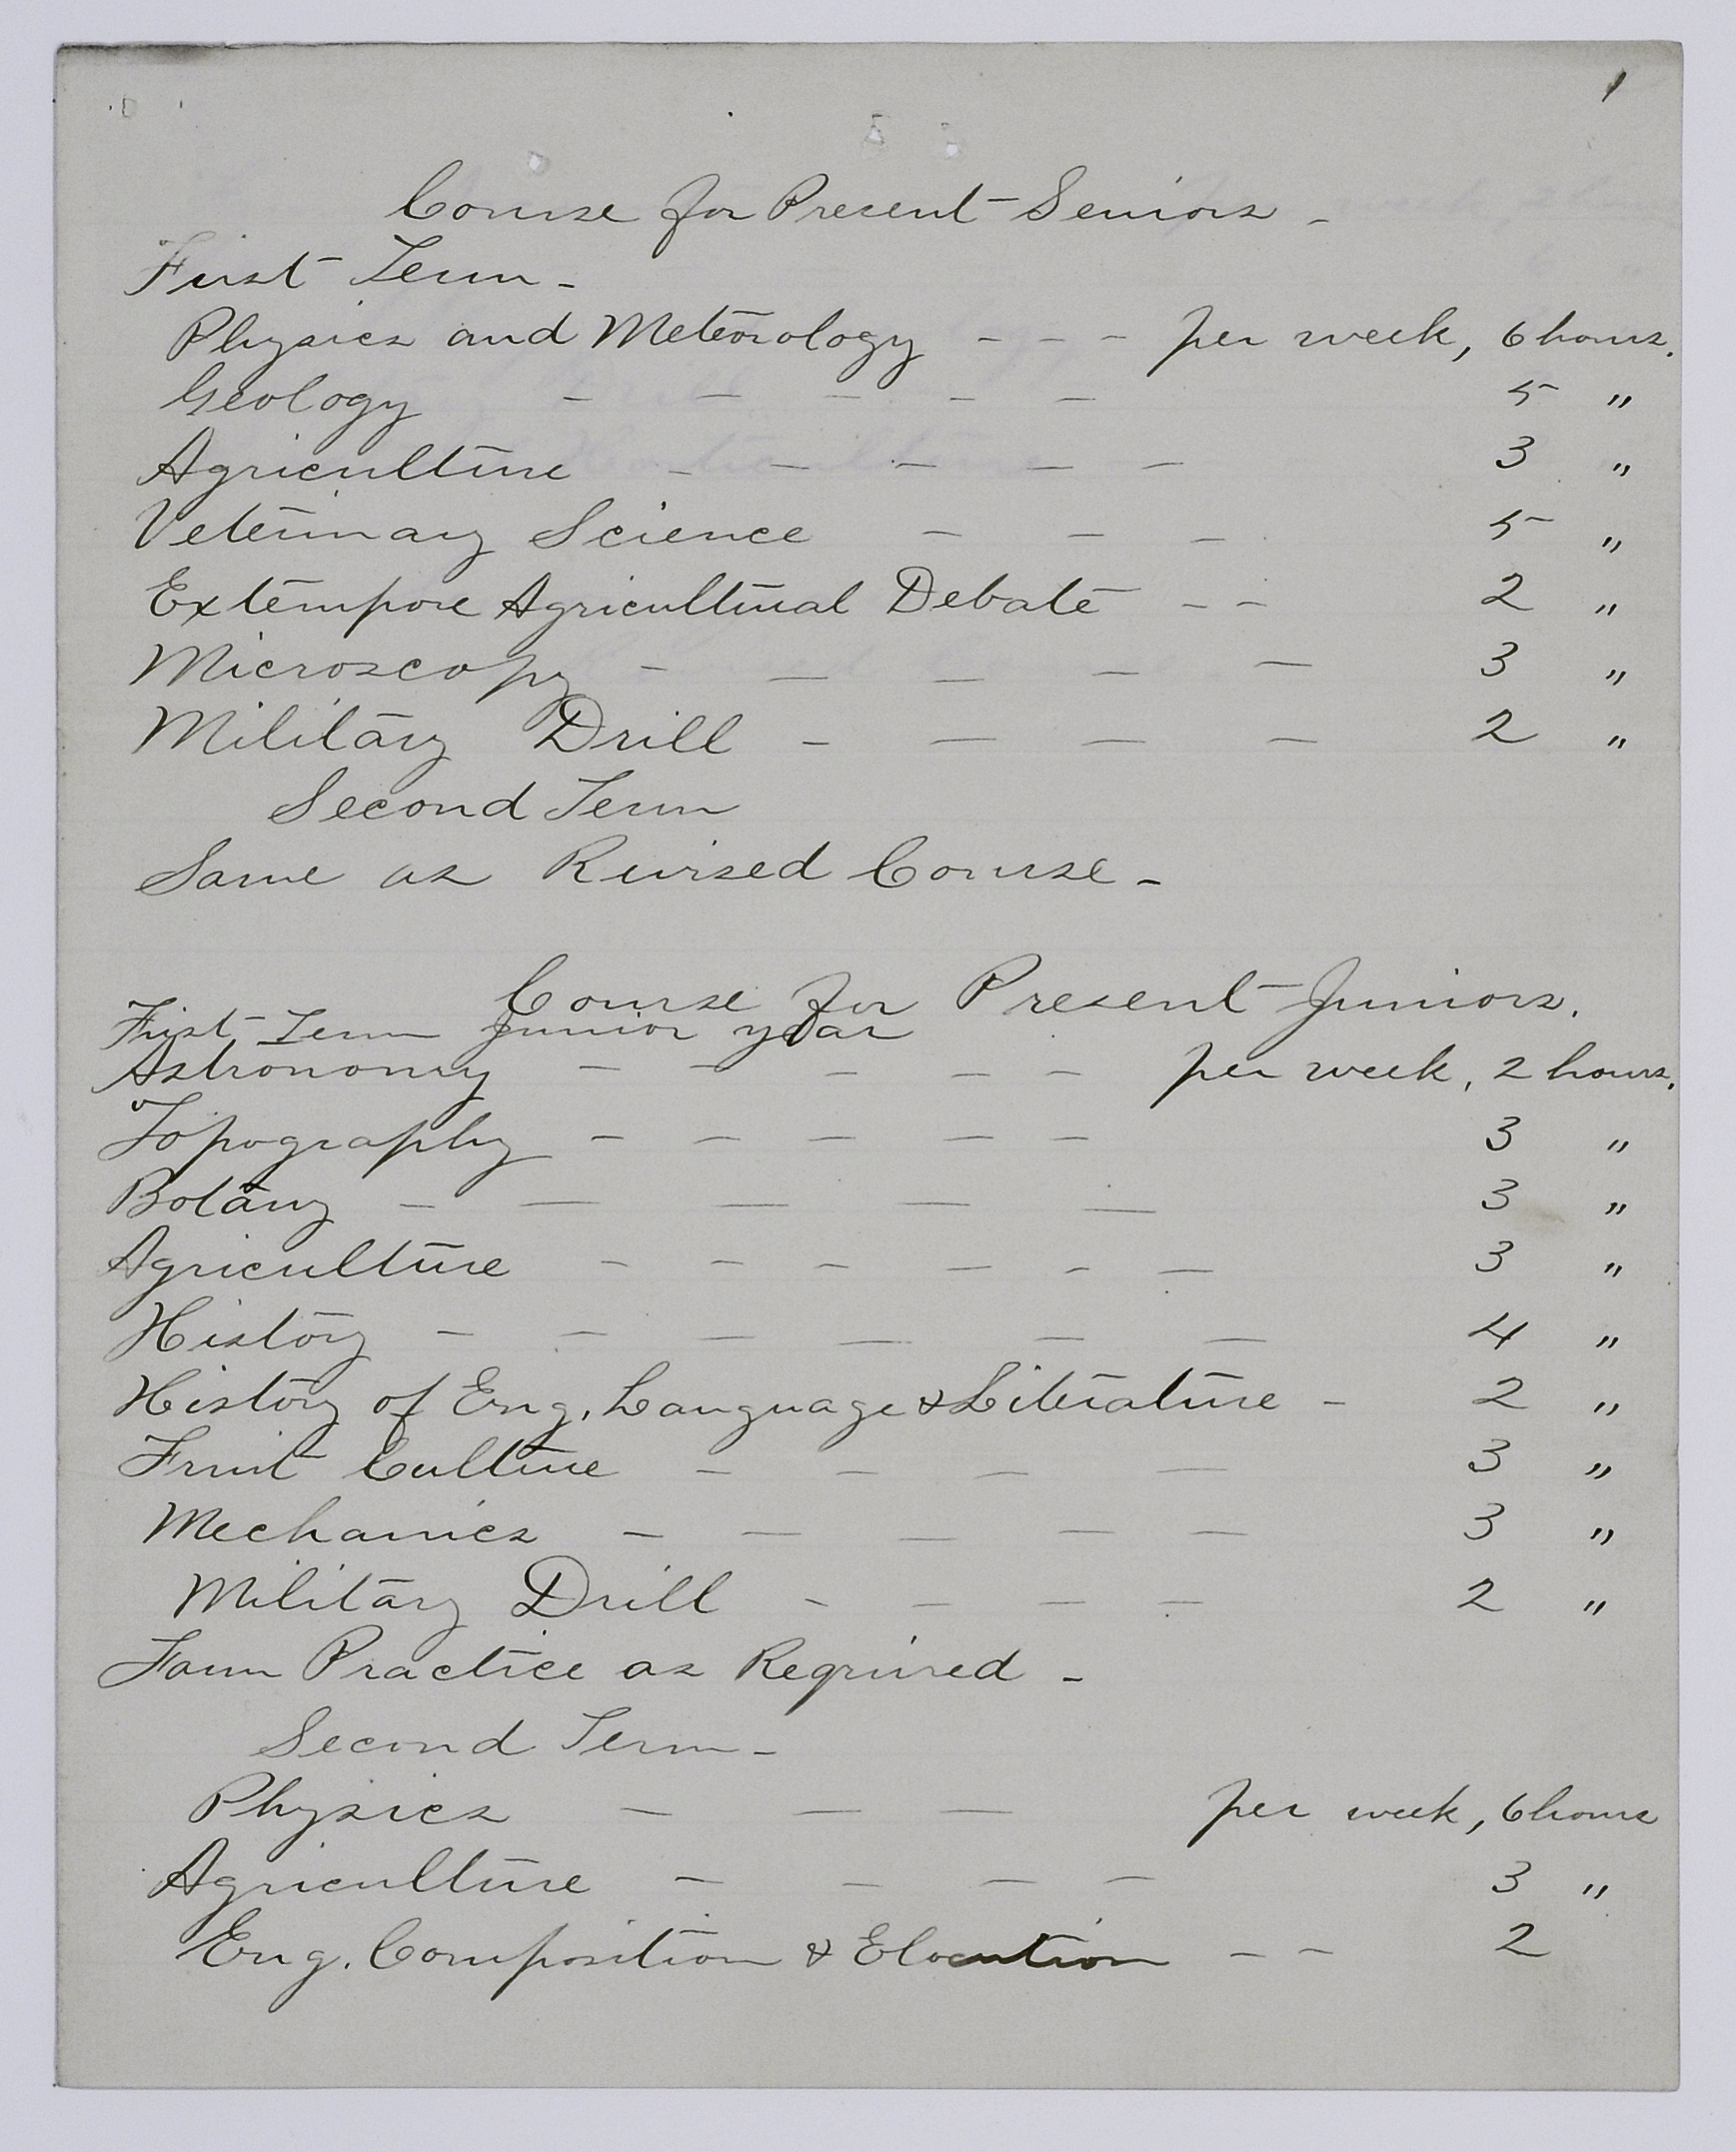 1
Course for Present Seniors -
First Term -
Physics and Meteorology - - - per week, 6 hours.
Geology - - - - - 5 "
Agriculture - - - - - 3 "
Veterinary Science - - - 5 "
Extempore Agricultural Debate - - 2 "
Microscopy - - - - - 3 "
Military Drill - - - - 2 "
Second Term
Same as Revised Course -
Course for Present Juniors.
First Term Junior year
Astronomy - - - - - per week, 2 hours.
Topography - - - - - 3 "
Botany - - - - - 3 "
Agriculture - - - - - - 3 "
History - - - - - - 4 "
History of Eng. Language & Literature - 2 "
Fruit Culture - - - - 3 "
Mechanics - - - - - 3 "
Military Drill - - - - 2 "
Farm Practice as Required -
Second Term -
Physics - - - per week, 6 hours
Agriculture - - - - 3 "
Eng. Composition & Elocution - - 2